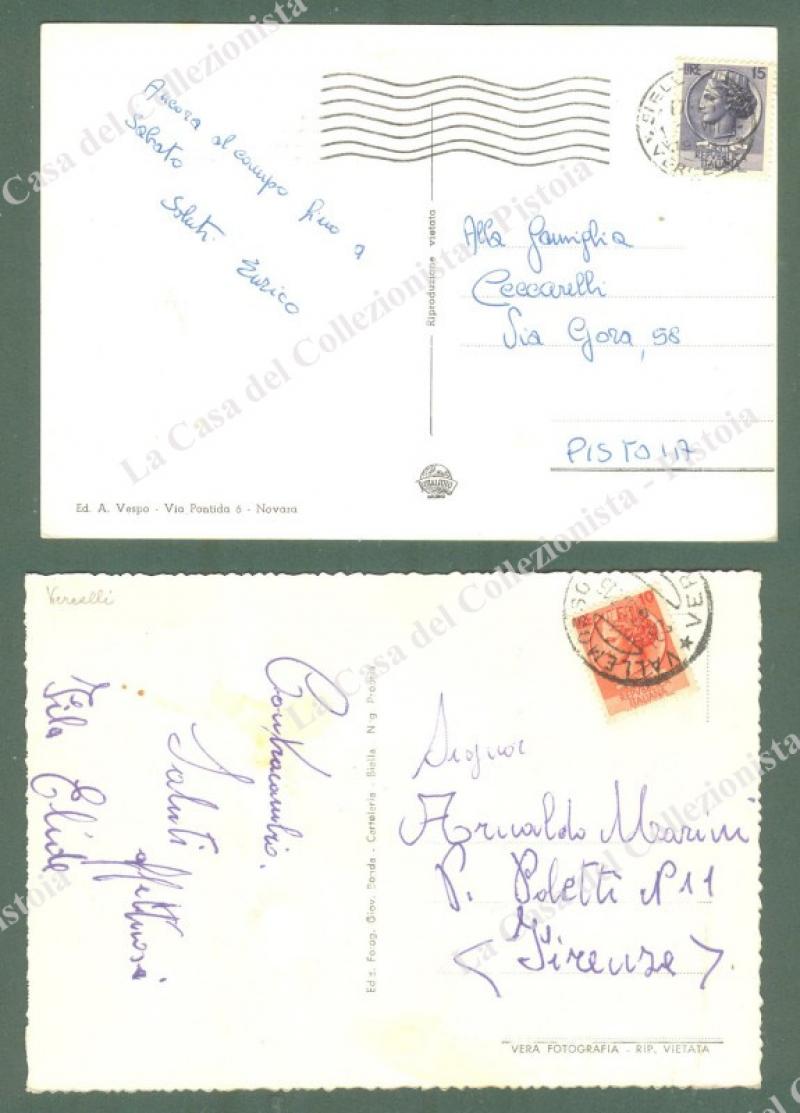 Ancora al campo fino a
Sabato
Saluti Enrico
LIRE 15
BIELLA
Alla famiglia
Ceccarelli
Via Gora, 58
PISTOIA
Riproduzione vietata
Ed. A. Vespo - Via Pontida 6 - Novara
Vercelli
10
VALLEMOSSO
VER
REPUBBLICA
ITALIANA
Contraccambio.
Saluti
affettuosi
Fila Elide
Signor
Arnaldo Marini
P. Poletti N 11
Firenze
Ediz. Fotog. Giov. Bonda - Cartoleria - Biella
VERA FOTOGRAFIA - RIP. VIETATA
La Casa del Collezionista - Pistoia